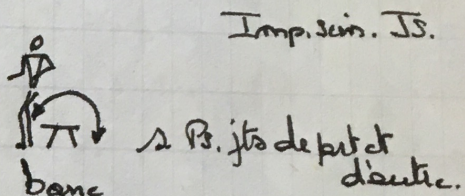 Imp. scin. JS.
s Ps. jts de part et
d'autre.
banc